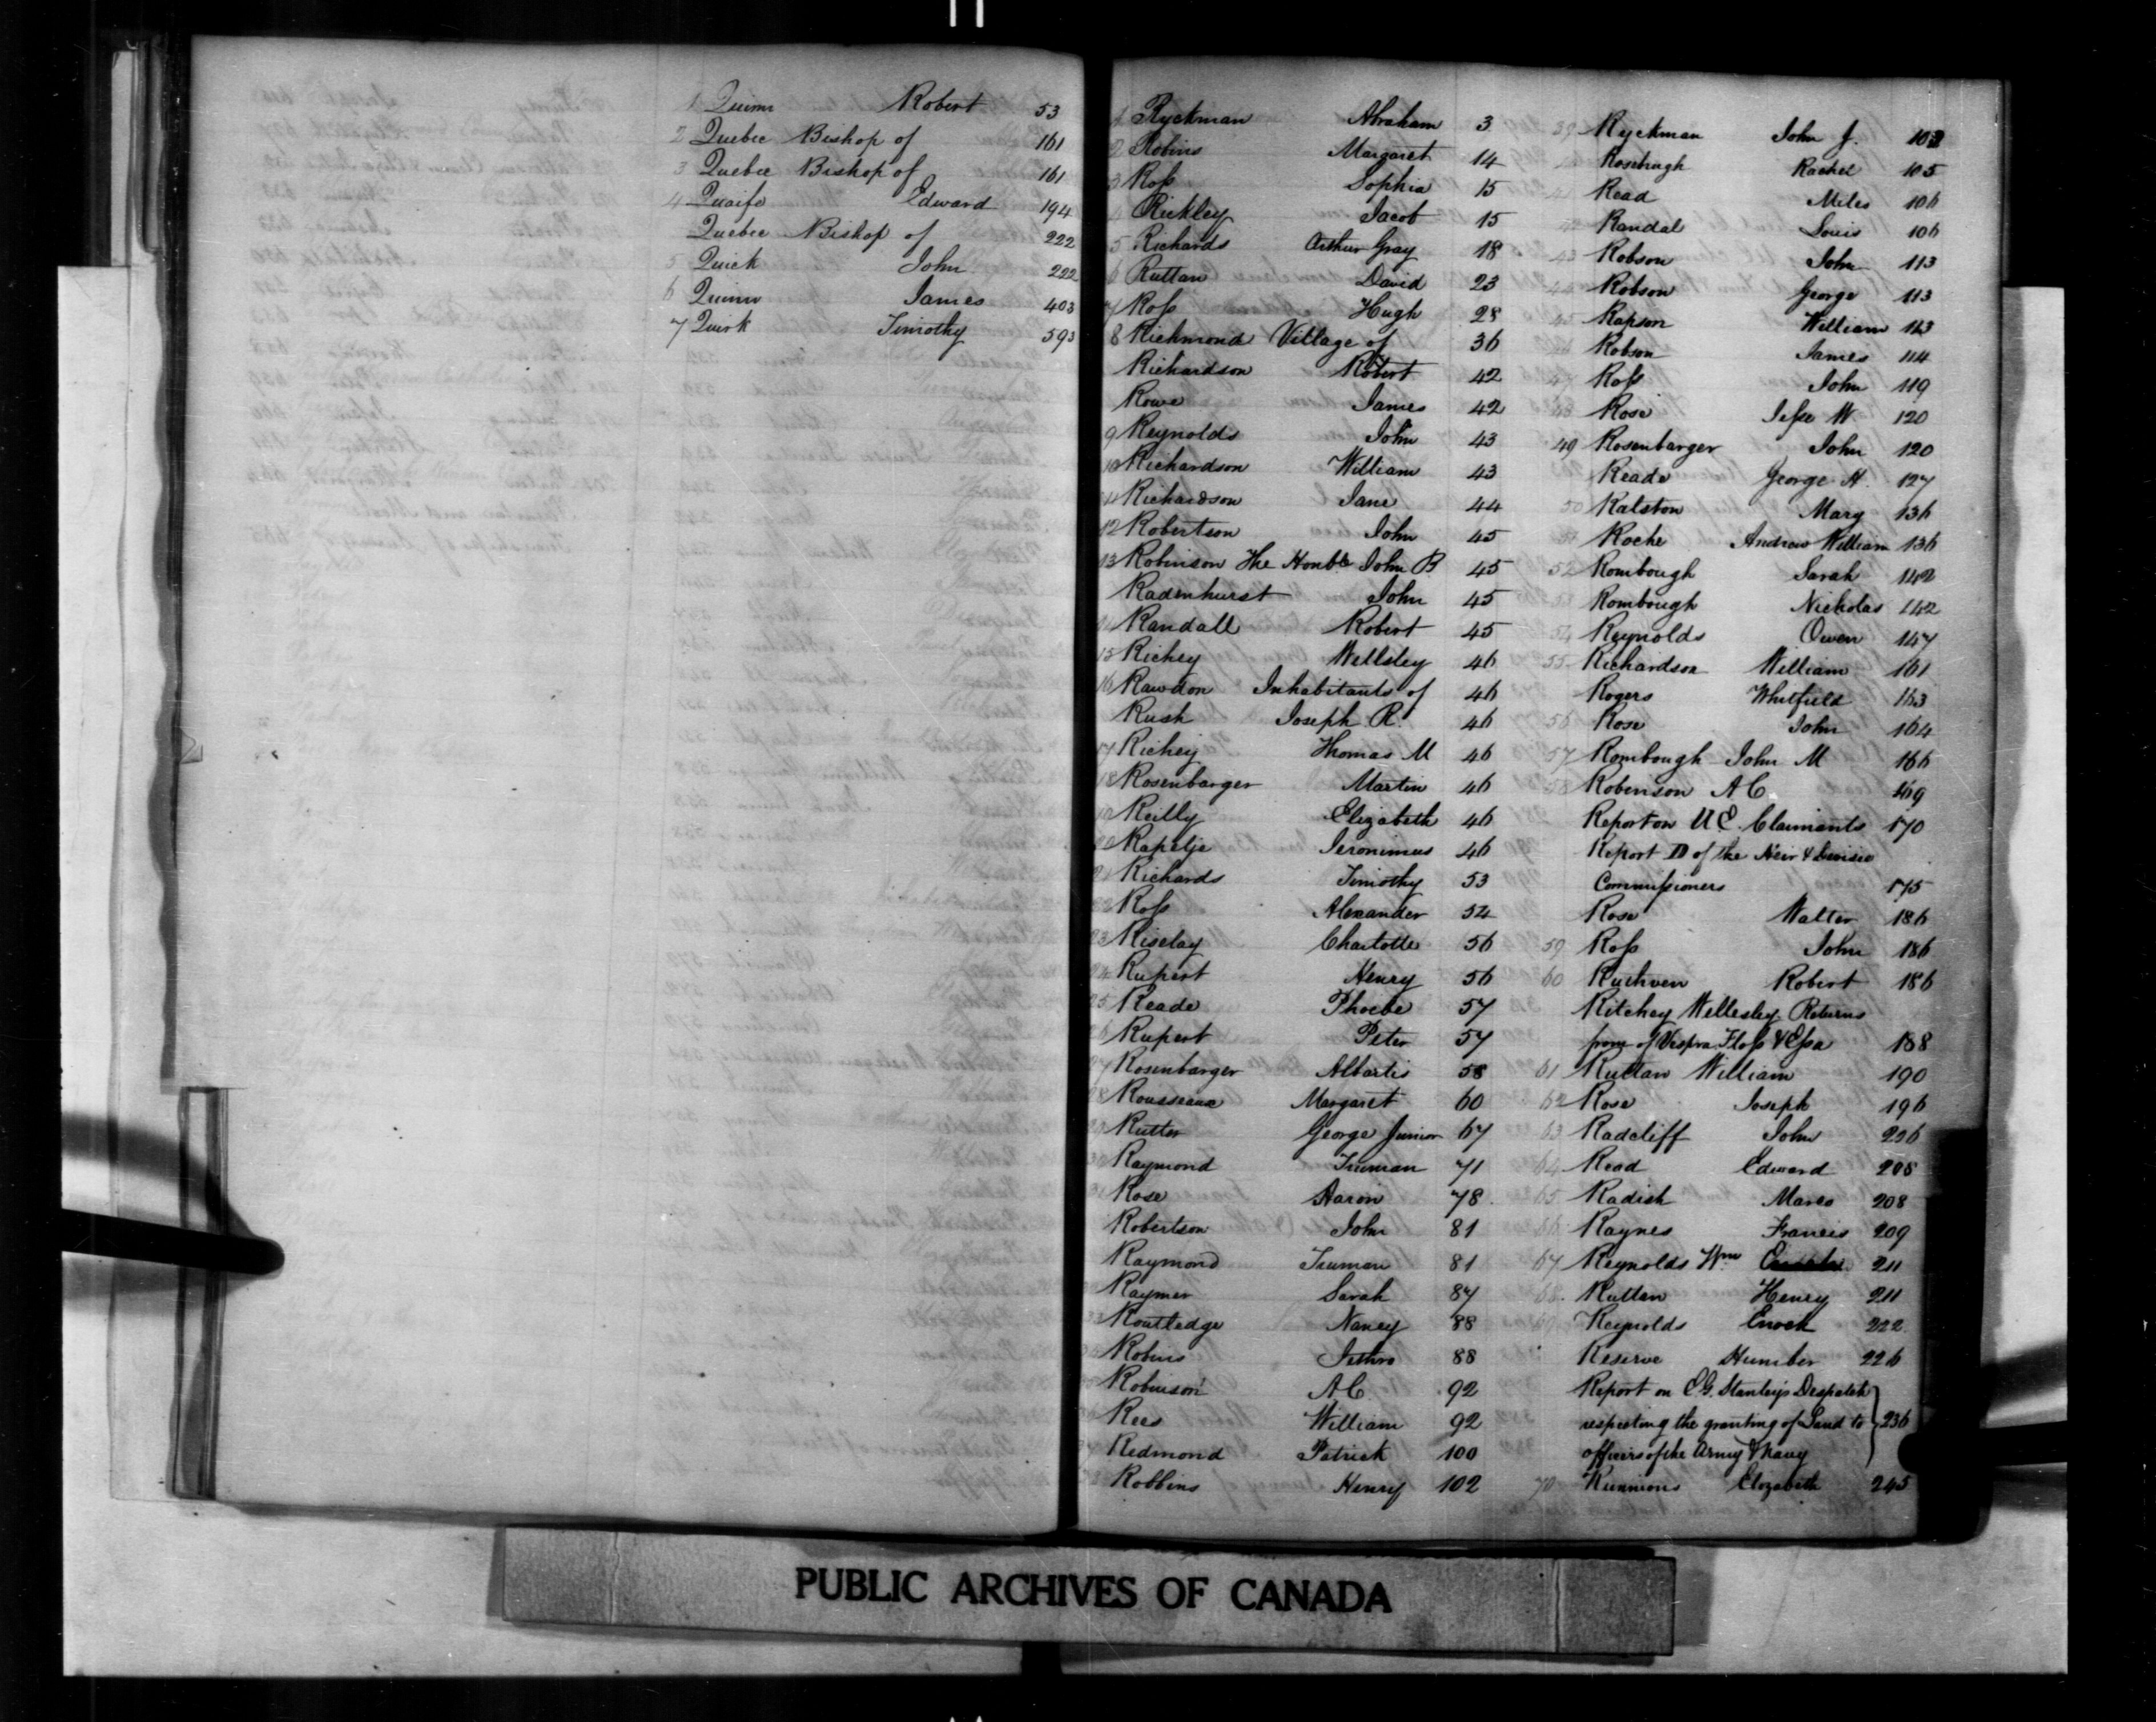 1 Quinn Robert 53
2 Quebec Bishop of 161
3 Quebec Bishop of 161
4 Quaife Edward 194
Quebec Bishop of 222
5 Quick John 222
6 Quinn James 403
7 Quirk Timothy 593
1 Ryckman Abraham 3
2 Robins Margaret 14
3 Roſs Sophia 15
4 Rickley Jacob 15
5 Richards Arthur Gray 18
6 Ruttan David 23
7 Roſs Hugh 28
8 Richmond Village of 36
Richardson Robert 42
Rowe James 42
9 Reynolds John 43
10 Richardson William 43
11 Richardson Jane 44
12 Robertson John 45
13 Robinson The Honble John B 45
Radenhurst John 45
Randall Robert 45
15 Richey Wellsley 46
16 Rawdon Inhabitants of 46
Rush Joseph R. 46
17 Richey Thomas M 46
18 Rosenbarger Martin 46
19 Reilly Elizabeth 46
20 Rapelje Jeronimus 46
21 Richards Timothy 53
22 Roſs Alexander 54
23 Riselay Charlotte 56
24 Rupert Henry 56
25 Reade Phoebe 57
26 Rupert Peter 57
27 Rosenbarger Albartis 58
28 Rousseaux Margaret 60
29 Rutter George Junior 67
Raymond Truman 71
Rose Aaron 78
Robertson John 81
Raymond Truman 81
Raymer Sarah 87
Routledge Nancy 88
Robins Jethro 88
Robinson A C 92
Rees William 92
Redmond Patrick 100
Robbins Henry 102
39 Ryckman John J. 103
Rosebugh Rachel 105
41 Read Miles 106
42 Randal Louis 106
43 Robson John 113
44 Robson George 113
45 Rapson William 113
Robson James 114
47 Roſs John 119
48 Rose Jeſse W 120
49 Rosenbarger John 120
Reade George H. 127
50 Ralston Mary 136
51 Roche Andrew William 136
52 Rombough Sarah 142
53 Rombough Nicholas 142
54 Reynolds Owen 147
55 Richardson William 161
Rogers Whitfield 163
56 Rose John 164
57 Rombough John M 166
58 Robinson A C 169
Report on U E. Claimants 170
Report D of the Heir & Devisee
Commiſsioners 175
Rose Walter 186
59 Roſs John 186
60 Ruthven Robert 186
Ritchey Wellesley Returns
from of Vespra Floſs & Eſsa 188
61 Ruttan William 190
62 Rose Joseph 196
63 Radcliff John 206
64 Read Edward 208
65 Radish Marco 208
66 Raynes Francis 209
67 Reynolds Wm 211
68 Ruttan Henry 211
69 Reynolds Enoch 222
Reserve Humber 226
Report on E.G. Stanleys Despatch
respecting the granting of Land to 236
officers of the Army & Navy
70 Runnions Elizabeth 245
PUBLIC ARCHIVES OF CANADA